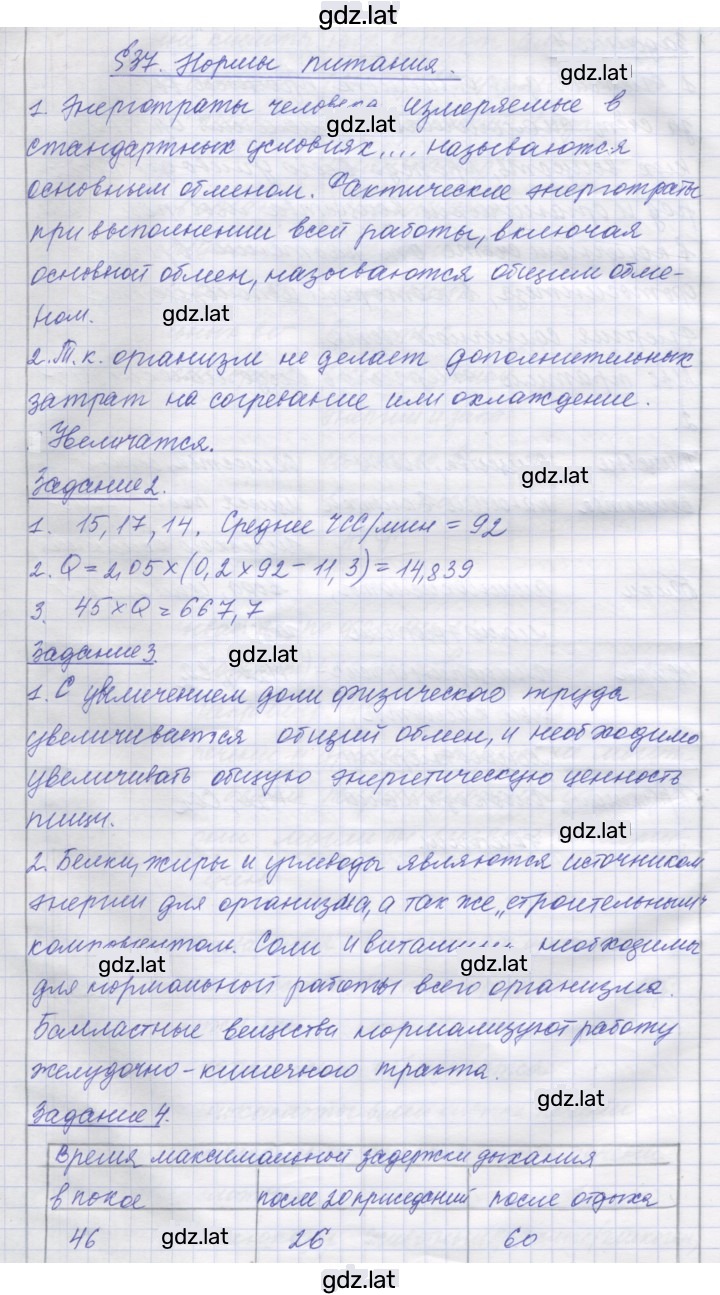 gdz.lat
§37. Нормы питания.
gdz.lat
1. Энерготраты человека измеряемые в
gdz.lat
стандартных условиях,... называются
основным обменом. Фактические энерготраты
при выполнении всей работы, включая
основной обмен, называются общим обме-
ном.
gdz.lat
2. Т.к. организм не делает дополнительных
затрат на согревание или охлаждение.
Увеличатся.
gdz.lat
Задание 2.
1. 15, 17, 14. Среднее ЧСС/мин = 92
2. Q = 2,05 × (0,2 × 92 - 11,3) = 14,839
3. 45 × Q = 667,7
Задание 3.
gdz.lat
1. С увеличением доли физического труда
увеличивается общий обмен, и необходимо
увеличивать общую энергетическую ценность
пищи.
gdz.lat
2. Белки, жиры и углеводы являются источником
энергии для организма, а так же „строительным"
компонентом. Соли и витамины необходимы
gdz.lat
gdz.lat
для нормальной работы всего организма.
Балластные вещества нормализуют работу
желудочно-кишечного тракта.
gdz.lat
Задание 4.
Время максимальной задержки дыхания
в покое после 20 приседаний после отдыха
46 26 60
gdz.lat
gdz.lat